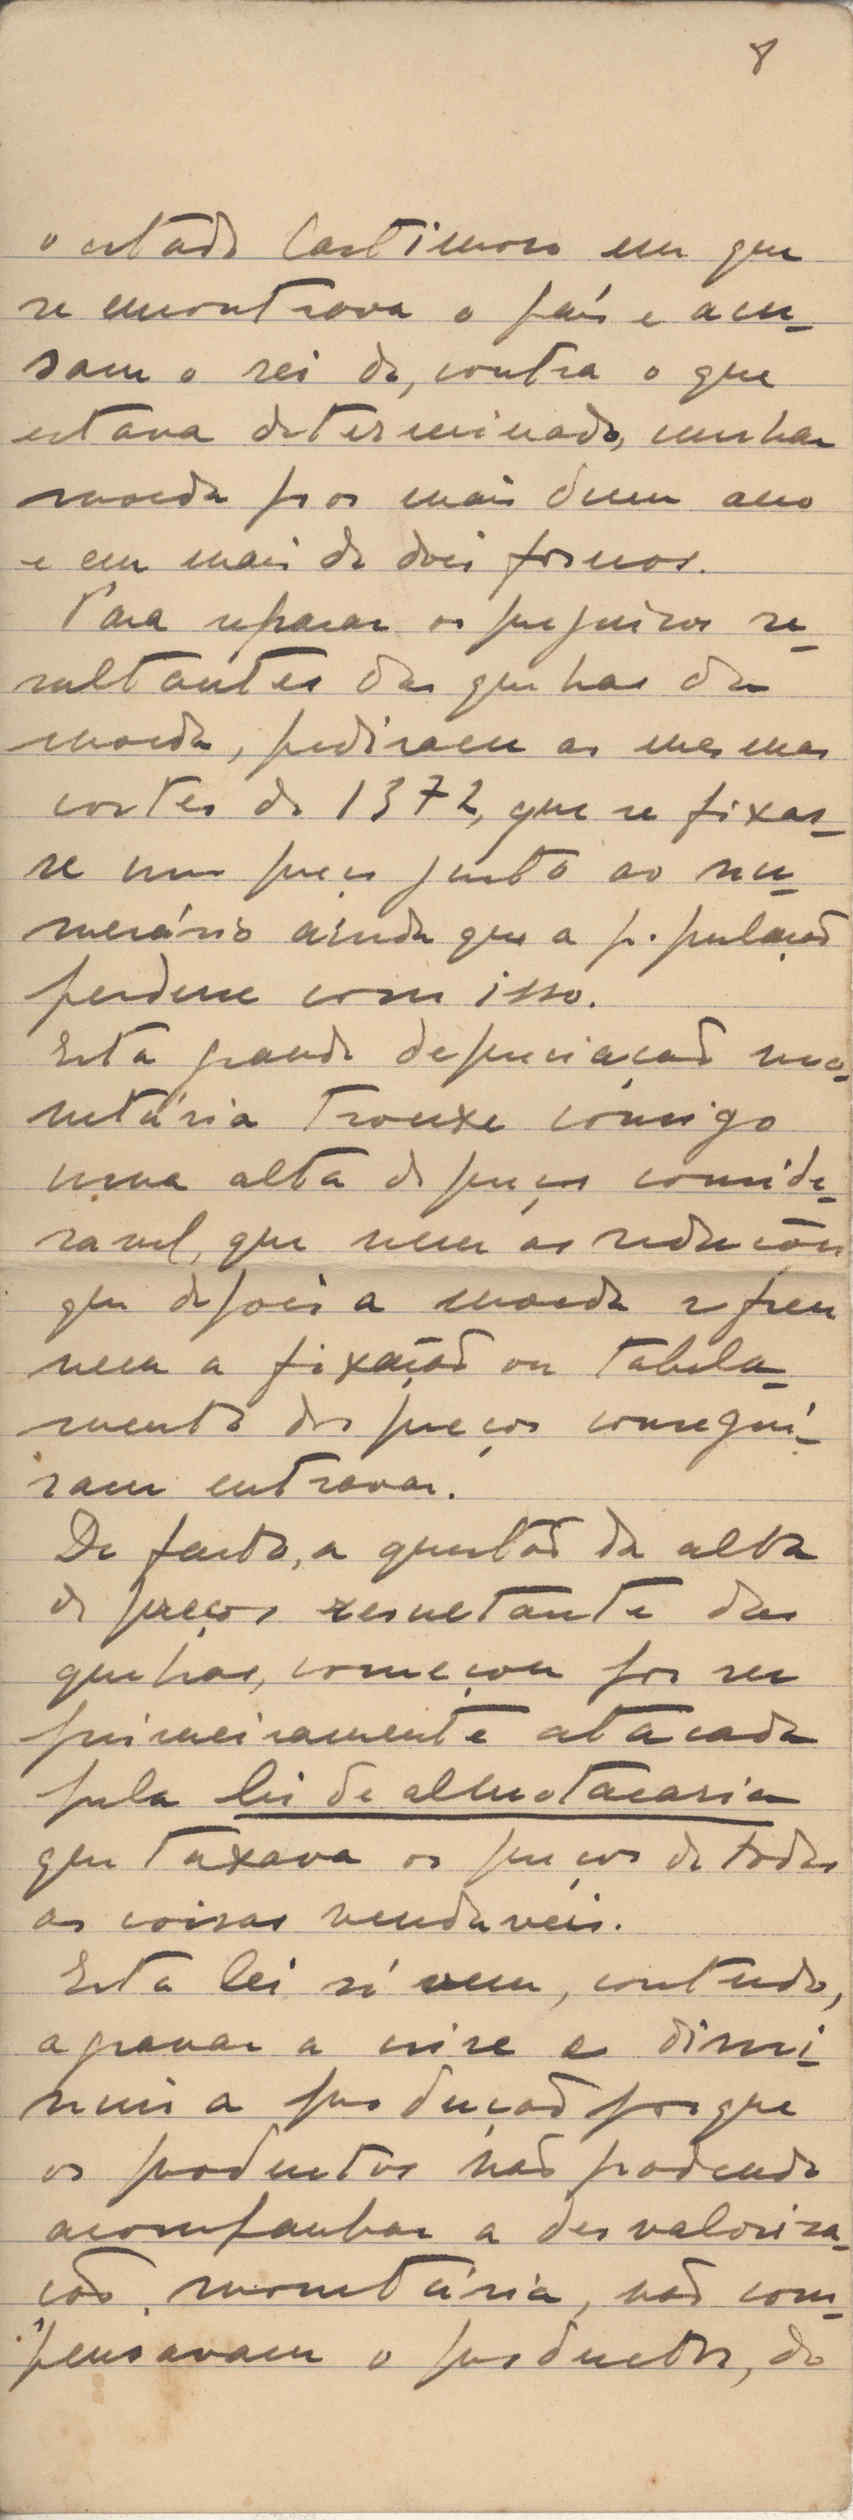 8
o estado lastimoso em que
se encontrava o país e acu-
sam o rei de, contra o que
estava determinado, cunhar
moeda por mais dum ano
e em mais de dois fornos.
Para reparar os prejuizos re-
sultantes das quebras da
moeda, pediram as mesmas
cortes de 1372, que se fixas-
se um preço justo ao nu-
merário ainda que a população
perdesse com isso.
Esta grande depreciação mo-
netária trouxe comsigo
uma alta de preços conside-
ravel, que nem as reduções
que depois a moeda sofreu
nem a fixação ou tabela-
mento dos preços consegui-
ram entravar.
De facto, a questão da alta
de preços resultante das
quebras, começou por ser
primeiramente atacada
pela lei de almotacaria
que taxava os preços de todas
as coisas vendaveis.
Esta lei só vem, contudo,
agravar a crise e dimi-
nuir a produção porque
os productos não podendo
acompanhar a desvaloriza-
ção monetária, não com-
pensavam o productor, do